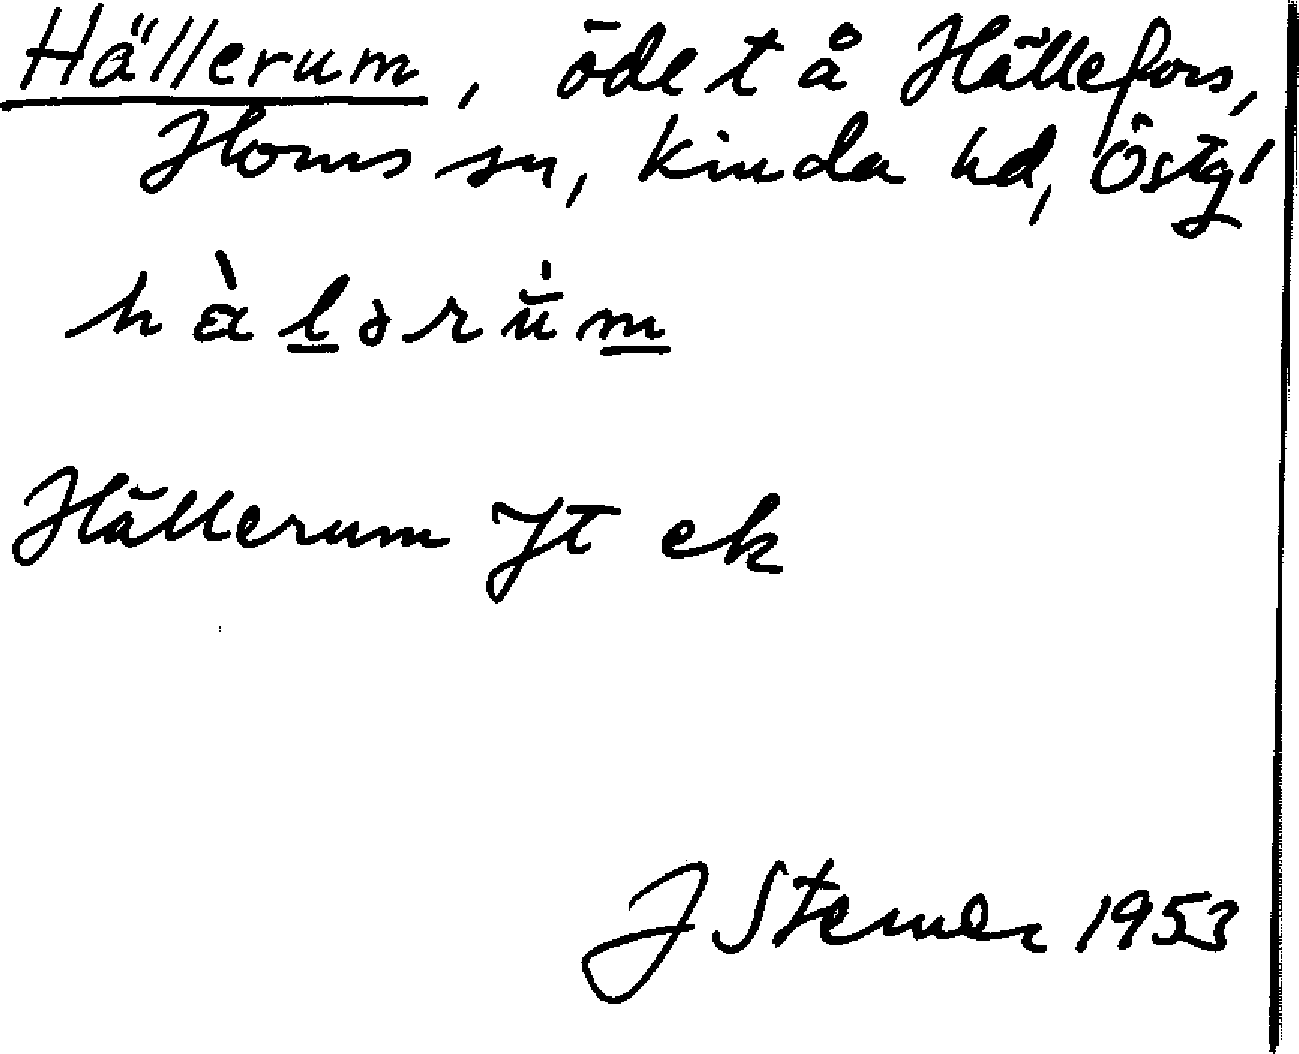 Hällerum, öde t å Hällefors,
Horns sn, Kinda hd, Östgl
hàlərum
Hällerum Jt ek
J Sterner 1953